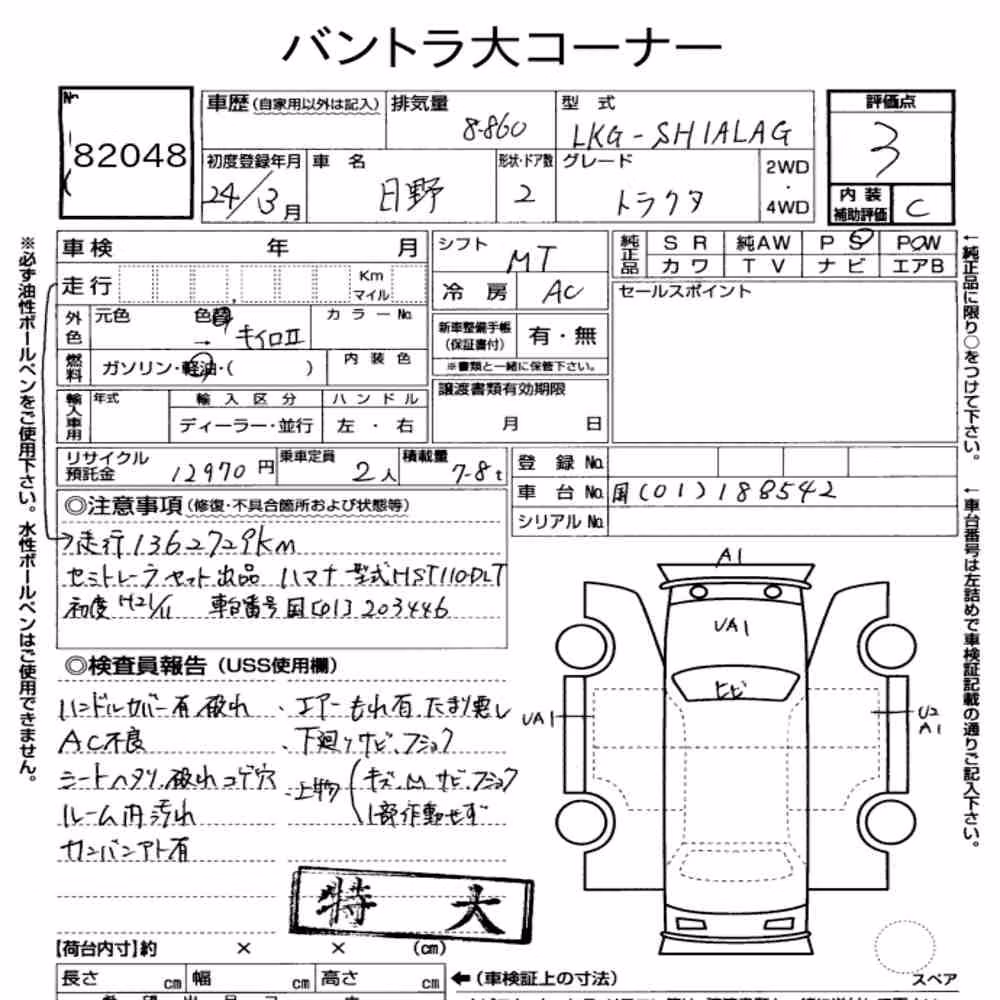 バントラ大コーナー
No.
82048
車歴(自家用以外は記入)
排気量
8-860
型 式
LKG-SH1ALAG
評価点
3
初度登録年月
24/3月
車 名
日野
形状・ドア数
2
グレード
トラクタ
2WD
・
4WD
内装
補助評価
C
車検 年 月
シフト
MT
純正品
SR 純AW PS PW
カワ TV ナビ エアB
走行 Km
マイル
冷 房
AC
セールスポイント
外色
元色 色替
→ キイロⅡ
カラーNo.
新車整備手帳
(保証書付)
有・無
※書類と一緒に保管下さい。
燃料
ガソリン・軽油・( )
内装色
譲渡書類有効期限
月 日
輸入車用
年式
輸入区分
ディーラー・並行
ハンドル
左・右
リサイクル
預託金
12970円
乗車定員
2人
積載量
7-8t
登録No.
車台No. 国(01)188542
シリアルNo.
◎注意事項(修復・不具合箇所および状態等)
→走行1362729Km
セミトレーラセット出品 ハマナ 型式HST110DLT
初度H21/11 車台番号国[01]203446
◎検査員報告(USS使用欄)
ハンドルカバー有 破れ
AC不良
シートヘタリ、破れ コゲ穴
ルーム内汚れ
カンバンアト有
、エアーもれ有、たまり悪し
、下廻りサビ、フショク
、上物(キズ、M サビ、フショク
1部作動せず
特大
A1
UA1
ヒビ
UA1
U2
A1
【荷台内寸】約 × × (cm)
長さ cm 幅 cm 高さ cm
←(車検証上の寸法)
スペア
※必ず油性ボールペンをご使用下さい。水性ボールペンはご使用できません。
←純正品に限り○をつけて下さい。
←車台番号は左詰めで車検証記載の通りご記入下さい。